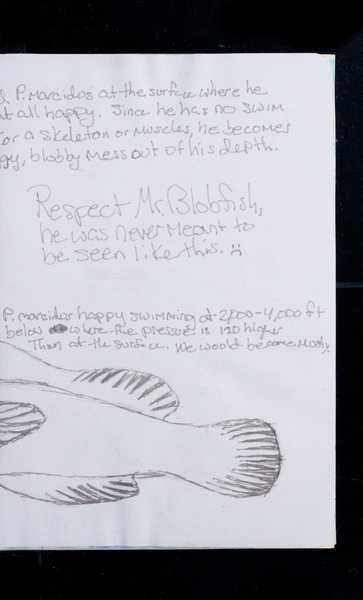 P. Marcidos at the surface where he
t all happy. Since he has no swim
or a skeleton or muscles, he becomes
gy, blobby mess out of his depth.
Respect Mr. Blobfish,
he was never meant to
be seen like this. :(
P. marcidus happy swimming at 2,000-4,000 ft
below where the pressure is 120 higher
Then at the surface. We would become Mushy.